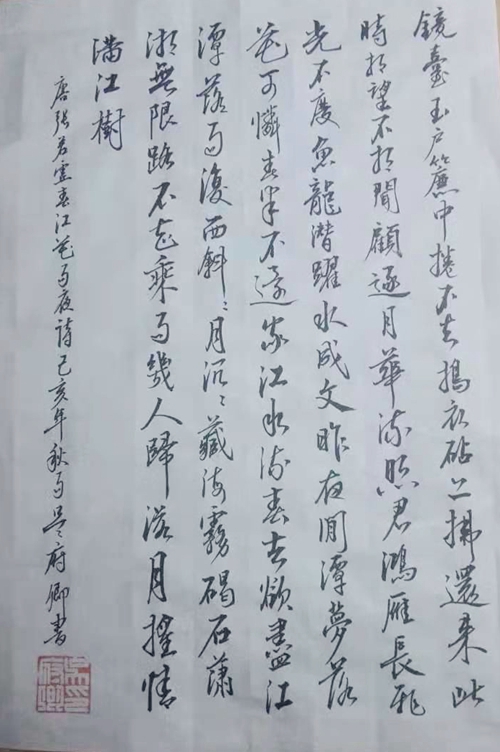 鏡臺玉户簾中捲不去搗衣砧上拂還來此
時相望不相聞願逐月華流照君鴻雁長飛
光不度魚龍潛躍水成文昨夜閒潭夢落
花可憐春半不還家江水流春去欲盡江
潭落月復西斜〻月沉〻藏海霧碣石瀟
湘無限路不知乘月幾人歸落月搖情
滿江樹
唐張若虛春江花月夜詩己亥年秋月吳府卿書